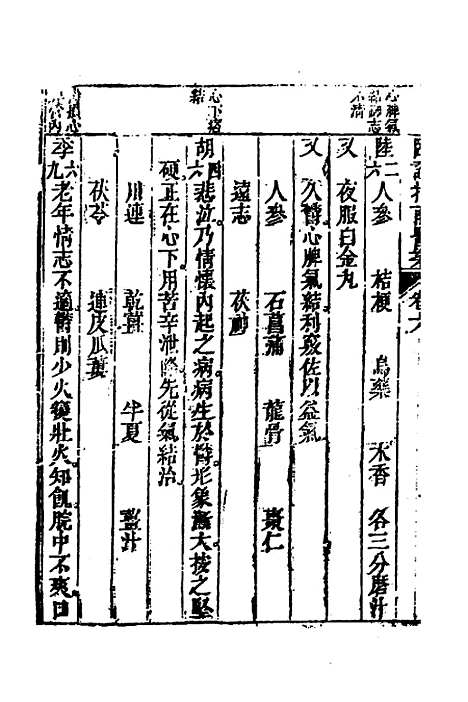 臨證指南醫案 卷六
心脾氣結神志不清
陸二六 人參 桔梗 烏藥 木香 各三分磨汁
又 夜服白金丸
又 久鬱心脾氣結利竅佐以益氣
人參 石菖蒲 龍骨 棗仁
遠志 茯神
心下痞結
胡四六 悲泣乃情懷內起之病病生於鬱形象漸大按之堅
硬正在心下用苦辛泄降先從氣結治
川連 乾薑 半夏 薑汁
茯苓 連皮瓜蔞
李六九 老年情志不適鬱則少火變壯火知飢脘中不爽口